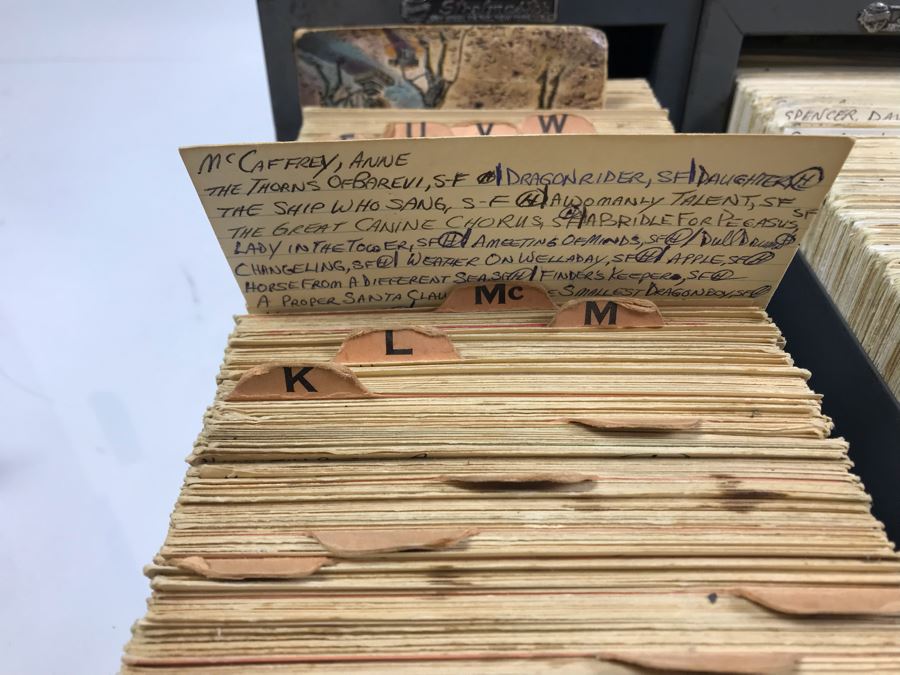 Steelmaster
SPENCER, DAV
U V W
McCAFFREY, ANNE
THE THORNS OF BAREVI, S-F (H)| DRAGONRIDER, SF| DAUGHTER(H)
THE SHIP WHO SANG, S-F (H)| A WOMANLY TALENT, SF
THE GREAT CANINE CHORUS, SF(H)| A BRIDLE FOR PEGASUS, SF
LADY IN THE TOWER, SF(H)| A MEETING OF MINDS, SF(H)| DULL DRUMS(H)
CHANGELING, SF(H)| WEATHER ON WELLADAY, SF(H)| APPLE, SF(H)
HORSE FROM A DIFFERENT SEA SF(H)| FINDER'S KEEPER, SF(H)
A PROPER SANTA CLAU SMALLEST DRAGONBOY, SF(H)
Mc
M
L
K